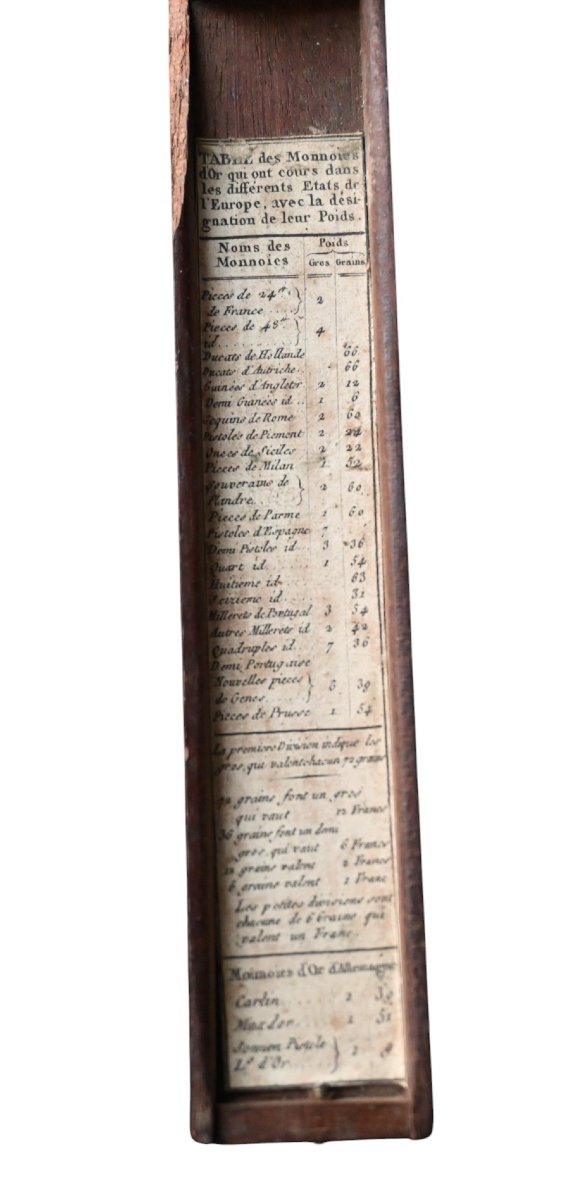 TABLE des Monnoies
d'Or qui ont cours dans
les différents Etats de
l'Europe, avec la dési-
gnation de leur Poids.
Noms des Monnoies Poids
Gros Grains
Pieces de 24tt
de France 2
Pieces de 48tt
id. 4
Ducats de Hollande 66
Ducats d'Autriche 66
Guinées d'Angleter 2 12
Demi Guinées id 1 6
Sequins de Rome 2 60
Pistoles de Piemont 2 24
Onces de Siciles 2 22
Pieces de Milan 1 52
Souverains de
Flandre 2 60
Pieces de Parme 1 60
Pistoles d'Espagne 7
Demi Pistoles id 3 36
Quart id 1 54
Huitieme id 63
Seizieme id 31
Millerets de Portugal 3 54
Autres Millerets id 2 42
Quadruples id 7 36
Demi Portugaise
Nouvelles pieces
de Genes 6 39
Pieces de Prusse 1 54
La premiere Division indique les
gros, qui valent chacun 72 grains
72 grains font un gros
qui vaut 12 Francs
36 grains font un demi
gros qui vaut 6 Francs
12 grains valent 2 Francs
6 grains valent 1 Franc
Les petites divisions sont
chacune de 6 Grains qui
valent un Franc.
Monnoies d'Or d'Allemagne
Carlin 2 39
Max dor 1 51
Pistole
Ls d'Or 1